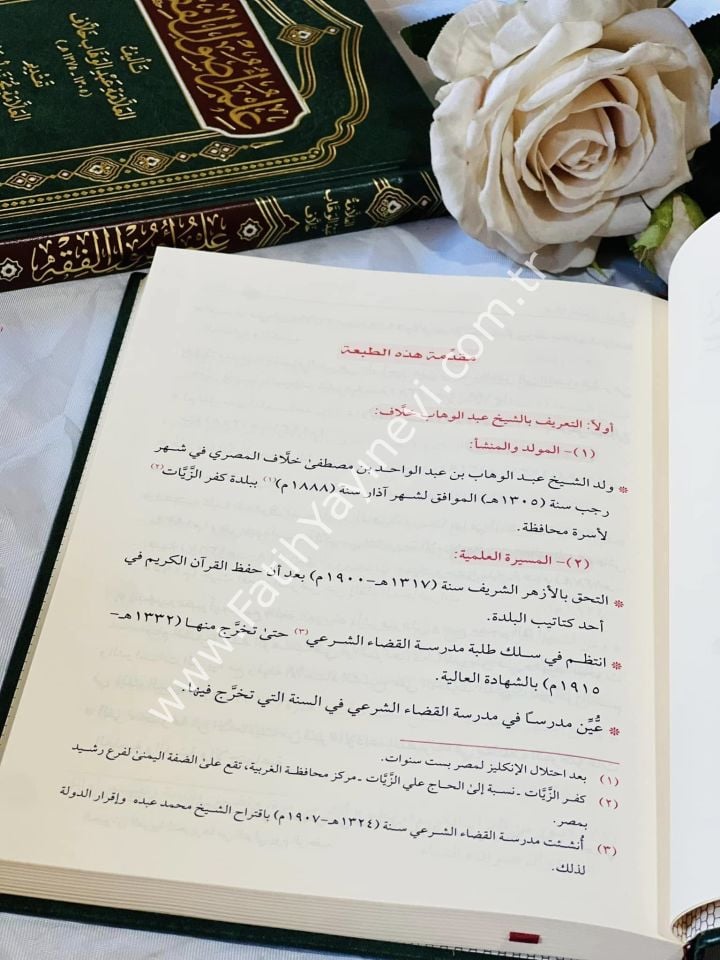 علم أصول الفقه
تأليف
العلامة عبد الوهاب خلاف
(١٣٠٥-١٣٧٥هـ)
تقديم
العلامة
علم أصول الفقه
العلامة
عبد الوهاب
خلاف
مقدّمة هذه الطبعة
أولاً: التعريف بالشيخ عبد الوهاب خلَّاف:
(١)- المولد والمنشأ:
* ولد الشيخ عبد الوهاب بن عبد الواحد بن مصطفىٰ خلَّاف المصري في شهر
رجب سنة (١٣٠٥هـ) الموافق لشهر آذار سنة (١٨٨٨م)(١) ببلدة كفر الزَّيَّات(٢)
لأسرة محافظة.
(٢)- المسيرة العلمية:
* التحق بالأزهر الشريف سنة (١٣١٧هـ-١٩٠٠م) بعد أن حفظ القرآن الكريم في
أحد كتاتيب البلدة.
* انتظم في سلك طلبة مدرسة القضاء الشرعي(٣) حتىٰ تخرَّج منها (١٣٣٢هـ-
١٩١٥م) بالشهادة العالية.
* عُيِّن مدرساً في مدرسة القضاء الشرعي في السنة التي تخرَّج فيها.
(١) بعد احتلال الإنكليز لمصر بست سنوات.
(٢) كفر الزَّيَّات - نسبة إلىٰ الحاج علي الزَّيَّات - مركز محافظة الغربية، تقع علىٰ الضفة اليمنىٰ لفرع رشيد
بمصر.
(٣) أُنشئت مدرسة القضاء الشرعي سنة (١٣٢٤هـ-١٩٠٧م) باقتراح الشيخ محمد عبده وإقرار الدولة
لذلك.
www.FatihYayinevi.com.tr